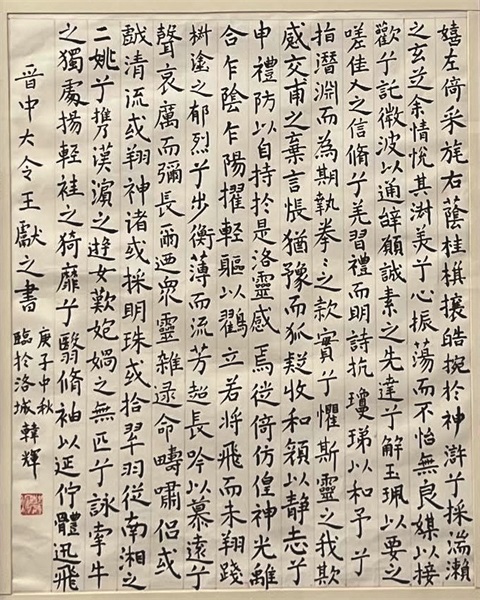 嬉左倚采旄右蔭桂旗攘皓捥於神滸兮採湍瀨
之玄芝余情悅其淑美兮心振蕩而不怡無良媒以接
歡兮託微波以通辭願誠素之先達兮解玉珮以要之
嗟佳人之信脩兮羌習禮而明詩抗瓊珶以和予兮
指潛淵而為期執拳〻之款實兮懼斯靈之我欺
感交甫之棄言悵猶豫而狐疑收和顏以靜志兮
申禮防以自持於是洛靈感焉徙倚仿偟神光離
合乍陰乍陽擢輕軀以鶴立若將飛而未翔踐
椒塗之郁烈兮步衡薄而流芳超長吟以慕遠兮
聲哀厲而彌長爾迺眾靈雜遝命疇嘯侶或
戲清流或翔神渚或採明珠或拾翠羽從南湘之
二姚兮攜漢濱之游女歎匏媧之無匹兮詠牽牛
之獨處揚輕袿之猗靡兮翳脩袖以延佇體迅飛
晉中大令王獻之書
庚子中秋
臨於洛城韓輝